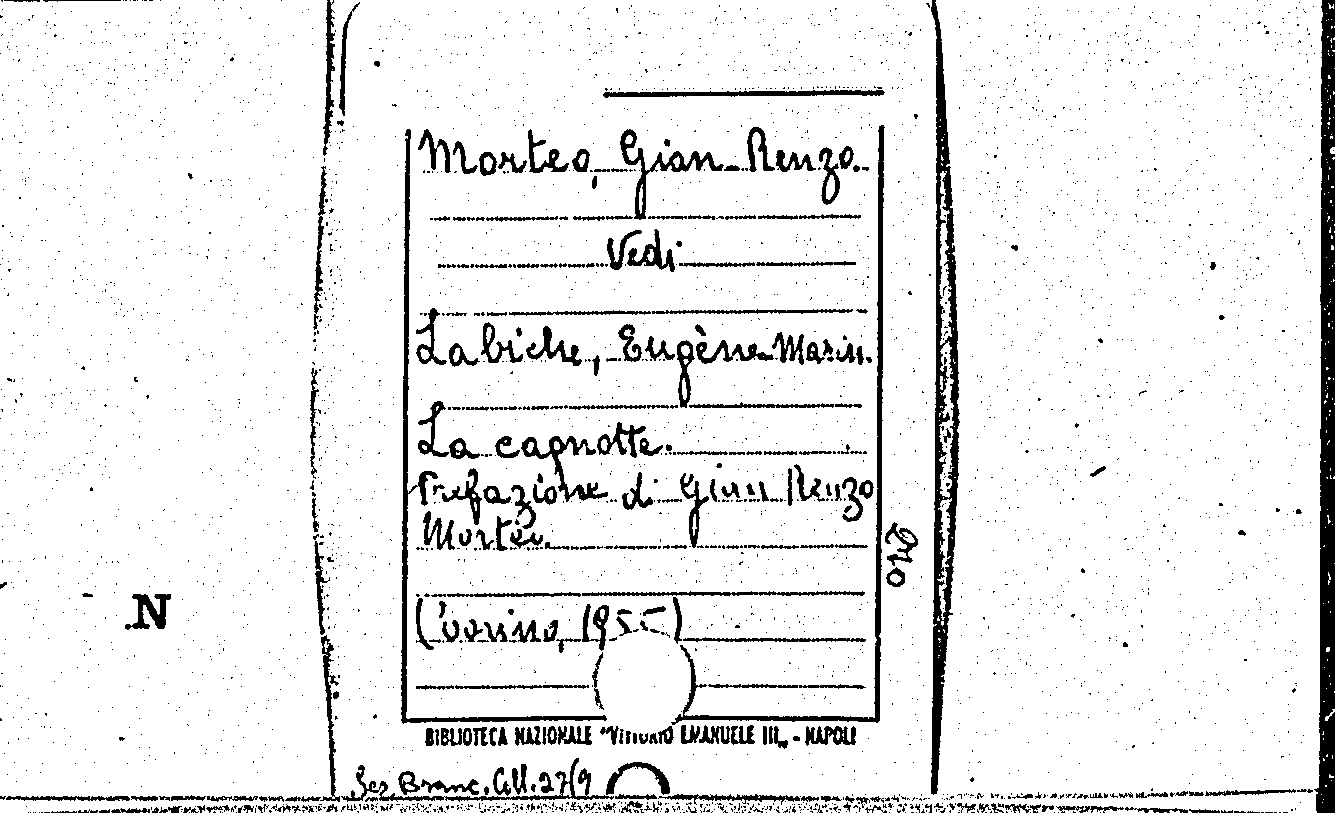 Morteo, Gian Renzo.
Vedi
Labiche, Eugène-Marin.
La cagnotte.
Prefazione di Gian Renzo
Morteo.
(Torino, 1955)
N
BIBLIOTECA NAZIONALE "VITTORIO EMANUELE III„ - NAPOLI
Branc. 27/9